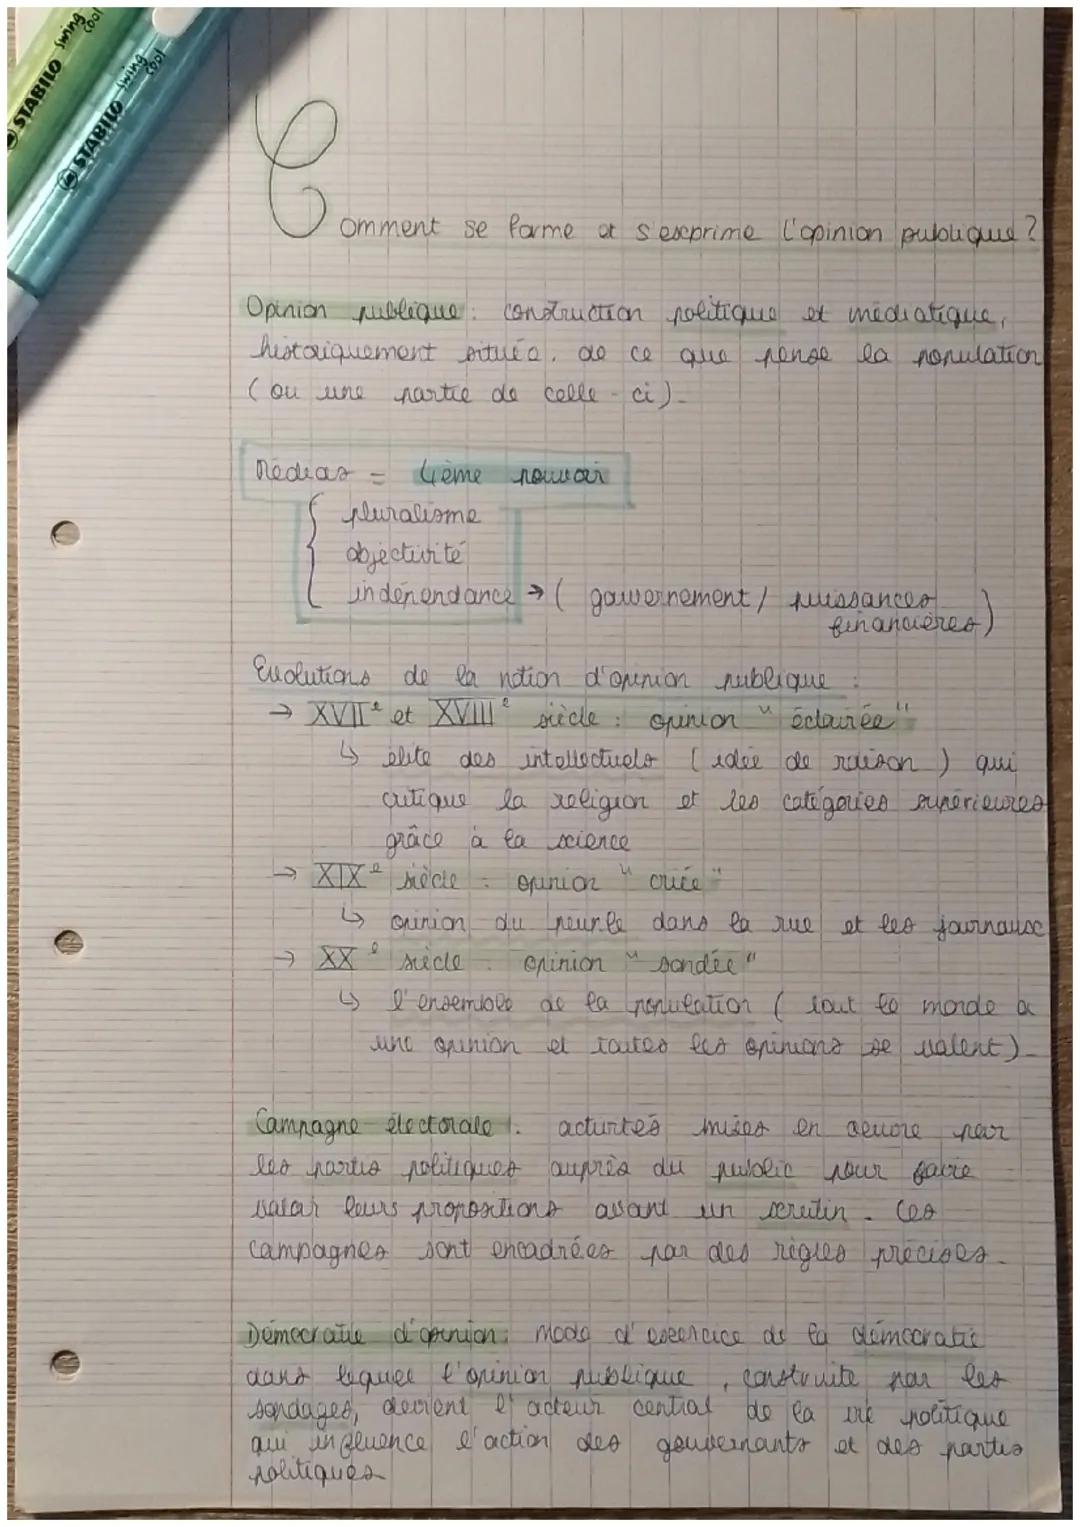 STABILO swing cool
STABILO swing cool
Comment se forme et s'exprime l'opinion publique ?
Opinion publique : construction politique et médiatique,
historiquement située, de ce que pense la population
(ou une partie de celle-ci).
Médias = 4ème pouvoir
pluralisme
objectivité
indépendance → ( gouvernement / puissances
financières)
Evolutions de la notion d'opinion publique :
→ XVIIe et XVIIIe siècle : opinion "éclairée"
↳ élite des intellectuels (idée de raison) qui
critique la religion et les catégories supérieures
grâce à la science
→ XIXe siècle : opinion "criée"
↳ opinion du peuple dans la rue et les journaux
→ XXe siècle : opinion "sondée"
↳ l'ensemble de la population ( tout le monde a
une opinion et toutes les opinions se valent).
Campagne électorale : activités mises en oeuvre par
les partis politiques auprès du public pour faire
valoir leurs propositions avant un scrutin. Ces
campagnes sont encadrées par des règles précises.
Démocratie d'opinion : mode d'exercice de la démocratie
dans lequel l'opinion publique, construite par les
sondages, devient l'acteur central de la vie politique
qui influence l'action des gouvernants et des partis
politiques